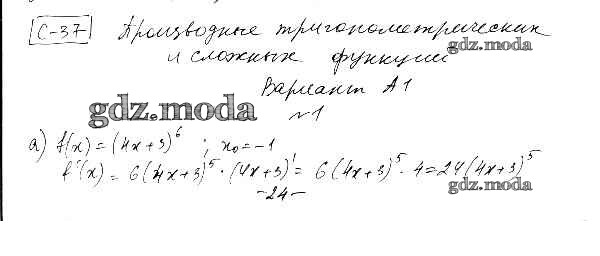 С-37 Производные тригонометрических
и сложных функций
gdz.moda
Вариант А1
gdz.moda
№1
а) f(x) = (4x+3)^6 ; x₀ = -1
f'(x) = 6(4x+3)^5 · (4x+3)' = 6(4x+3)^5 · 4 = 24(4x+3)^5
gdz.moda
-24-